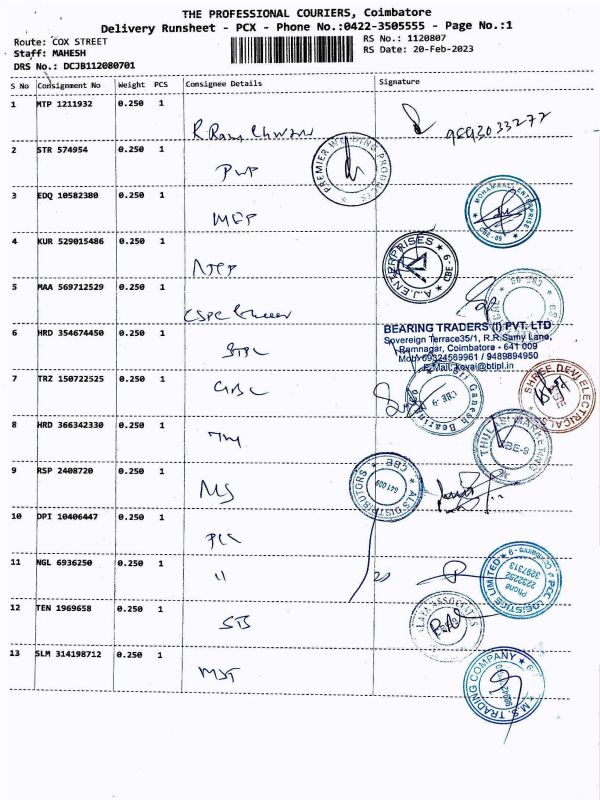 THE PROFESSIONAL COURIERS, Coimbatore
Delivery Runsheet - PCX - Phone No.:0422-3505555 - Page No.:1
Route: COX STREET
RS No.: 1120807
Staff: MAHESH
RS Date: 20-Feb-2023
DRS No.: DCJB112080701
S No Consignment No Weight PCS Consignee Details Signature
1 MTP 1211932 0.250 1
2 STR 574954 0.250 1
PWP
PREMIER WELDING PRODUCTS
3 EDQ 10582380 0.250 1
4 KUR 529015486 0.250 1
A.J.ENTERPRISES CBE-9
5 MAA 569712529 0.250 1
6 HRD 354674450 0.250 1
BEARING TRADERS (I) PVT. LTD
Sovereign Terrace35/1, R.R.Samy Lane,
Ramnagar, Coimbatore - 641 009
Mob: 09324569961 / 9489894950
E.Mail: kovai@btipl.in
7 TRZ 150722525 0.250 1
GBC
Sri Ganesh Bearing CBE-9
SHREE DEVI ELECTRICALS
8 HRD 366342330 0.250 1
CBE-9
9 RSP 2408720 0.250 1
ALS DISTRIBUTORS CBE 641 009
10 DPI 10406447 0.250 1
PLL
11 NGL 6936250 0.250 1
11
PCC LOGISTICS LIMITED
Phone
2232252
3297313
12 TEN 1969658 0.250 1
STS
13 SLM 314198712 0.250 1
MST
M.S. TRADING COMPANY